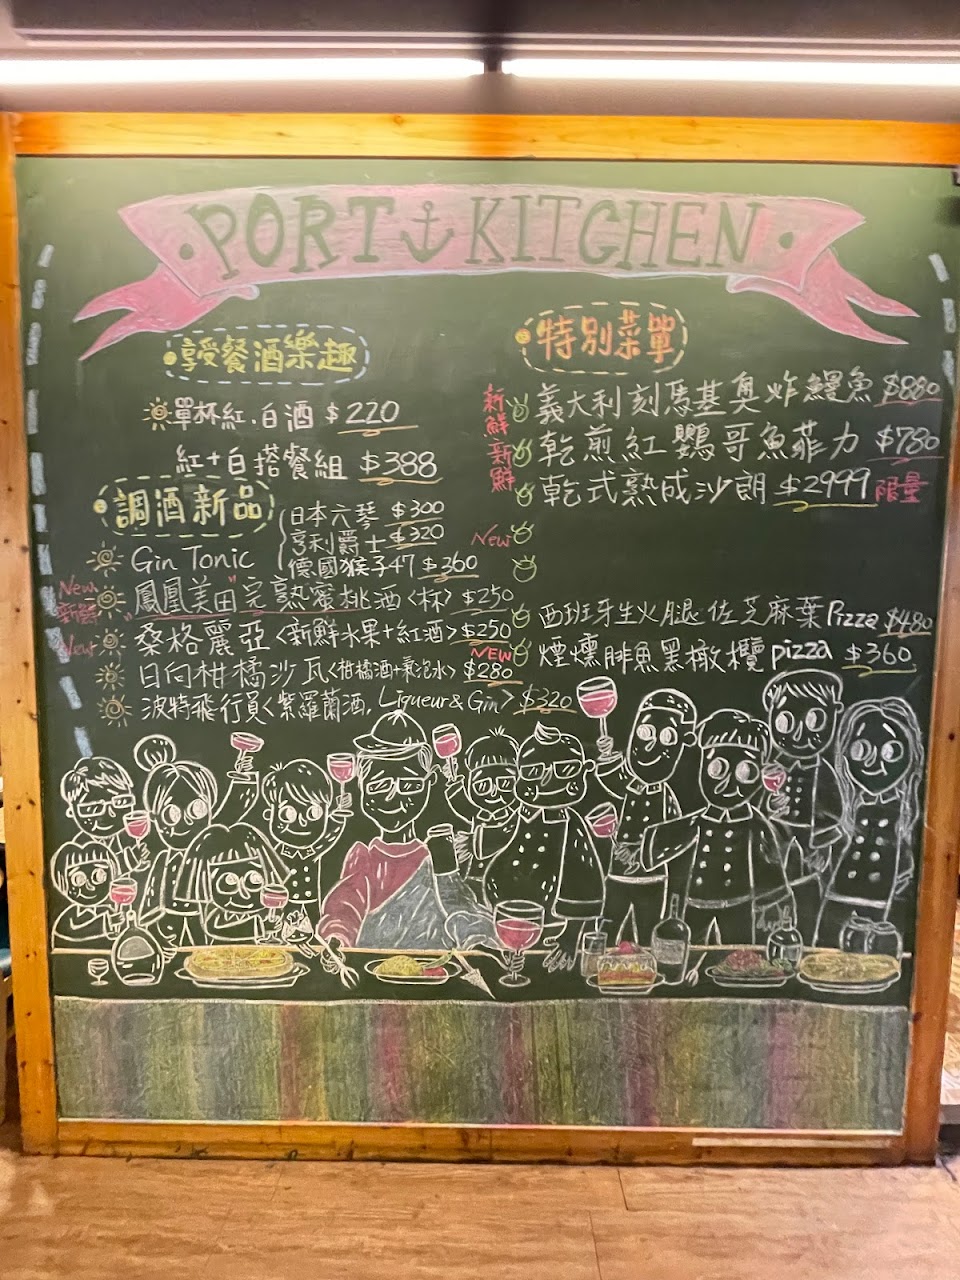 PORT KITCHEN
享受餐酒樂趣
單杯紅.白酒 $220
紅+白搭餐組 $388
調酒新品
Gin Tonic
日本六琴 $300
亨利爵士 $320
德國猴子47 $360
New 新鮮 鳳凰美田"完熟蜜桃酒<杯> $250
New 桑格麗亞<新鮮水果+紅酒> $250
NEW
日向柑橘沙瓦<柑橘酒+氣泡水> $280
波特飛行員<紫羅蘭酒, Liqueur & Gin> $320
特別菜單
新鮮 義大利刻馬基奧炸鰻魚 $880
新鮮 乾煎紅鸚哥魚菲力 $780
乾式熟成沙朗 $2999 限量
New
西班牙生火腿佐芝麻葉Pizza $480
煙燻鯡魚黑橄欖pizza $360